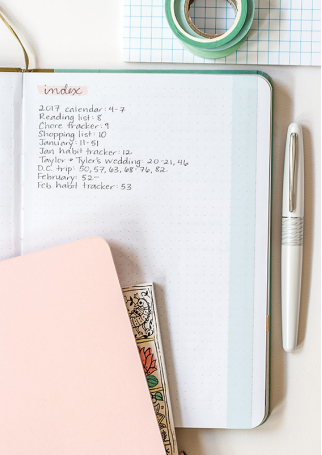 index
2017 calendar: 4-7
Reading list: 8
Chore tracker: 9
Shopping list: 10
January: 11-51
Jan habit tracker: 12
Taylor + Tyler's wedding: 20-21, 46
D.C. trip: 50, 57, 63, 68-76, 82
February: 52-
Feb. habit tracker: 53